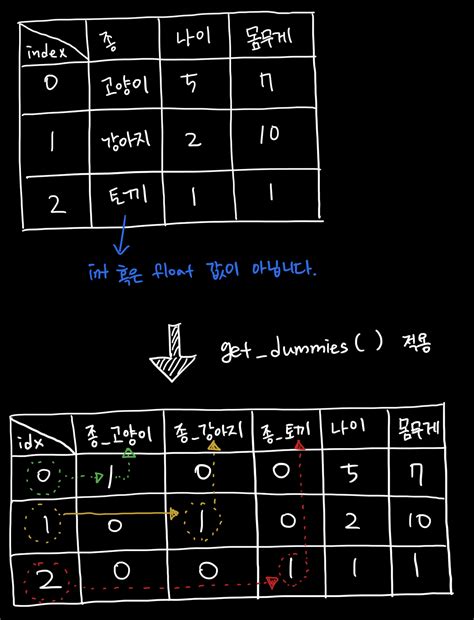 index 종 나이 몸무게
0 고양이 5 7
1 강아지 2 10
2 토끼 1 1
int 혹은 float 값이 아닙니다.
get_dummies() 적용
idx 종_고양이 종_강아지 종_토끼 나이 몸무게
0 1 0 0 5 7
1 0 1 0 2 10
2 0 0 1 1 1